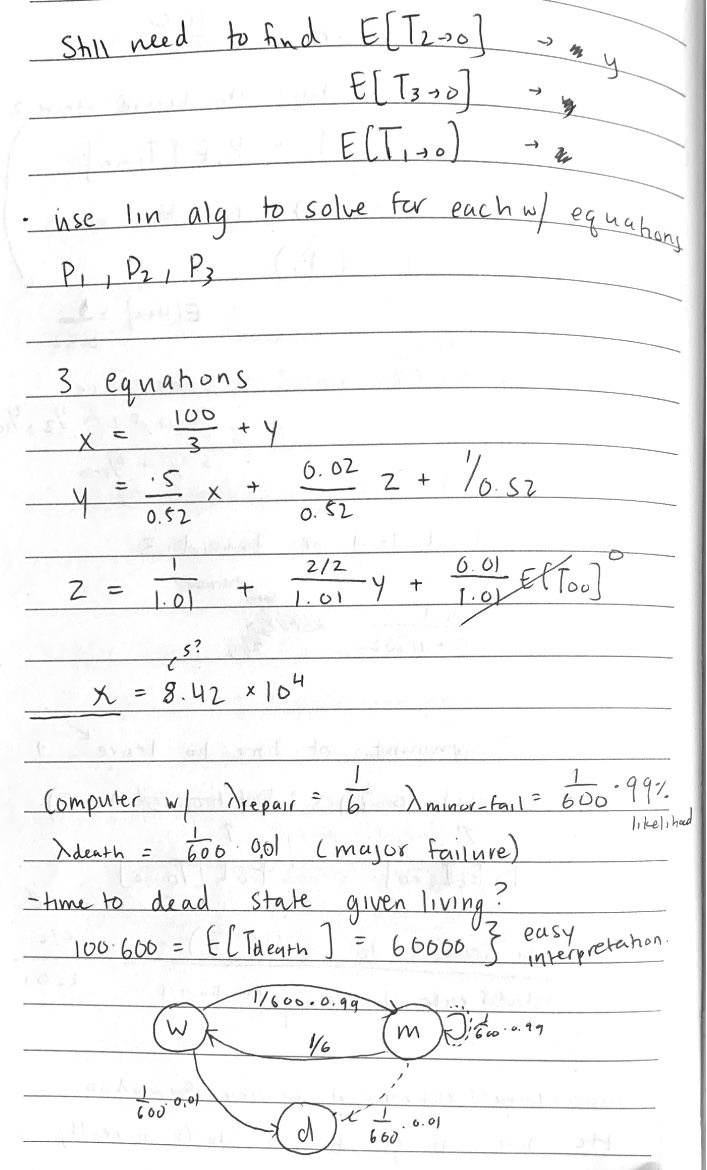 Still need to find E[T2→0] → y
E[T3→0] →
E[T1→0) → z
• use lin alg to solve for each w/ equations
P1, P2, P3
3 equations
x = 100/3 + y
y = .5/0.52 x + 0.02/0.52 z + 1/0.52
z = 1/1.01 + 2/2/1.01 y + 0.01/1.01 E[T00] 0
s?
x = 8.42 × 10^4
Computer w/ λrepair = 1/6 λminor-fail = 1/600 · 99%
likelihood
λdeath = 1/600 · 0.01 (major failure)
- time to dead state given living?
100·600 = E[Tdeath] = 60000 } easy
interpretation.
1/600 · 0.99
W m 1/600 · 0.99
1/6
1/600 · 0.01
d 1/600 · 0.01